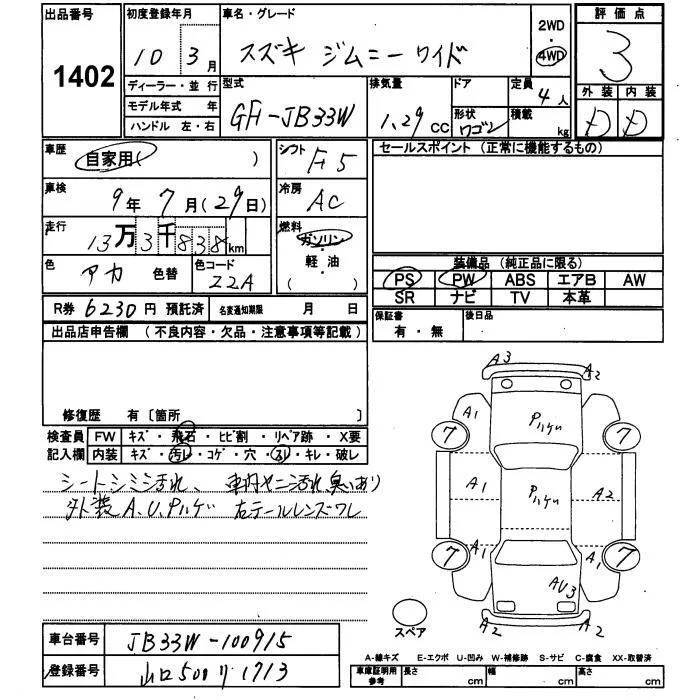 出品番号 初度登録年月 車名・グレード 2WD 評価点
1402 10 3月 スズキ ジムニーワイド 4WD 3
ディーラー・並行 型式 排気量 ドア 定員 4人 外装 内装
モデル年式 年 GF-JB33W 1.29cc 形状 ワゴン 積載 kg D D
ハンドル 左・右
車歴 自家用( ) シフト F5 セールスポイント (正常に機能するもの)
車検 9年7月(29日) 冷房 AC
走行 13万3千838km 燃料 ガソリン・軽油・( )
色 アカ 色替 色コード Z2A 装備品 (純正品に限る)
PS PW ABS エアB AW
SR ナビ TV 本革
R券 6230円 預託済 名変通知期限 月 日 保証書 有・無 後日品
出品店申告欄 (不良内容・欠品・注意事項等記載)
修復歴 有〔箇所
検査員 FW キズ・飛石・ヒビ割・リペア跡・X要
記入欄 内装 キズ・汚レ・コゲ・穴・スレ・キレ・破レ
シートシミ汚れ、車内ヤニ汚れ臭いあり
外装A.U.Pハゲ 右テールレンズワレ
A3
A2
A1 Pハゲ
7 7
Pハゲ
A1 Pハゲ A2
A1 A1
7 7
AU3
A2 A2
スペア
車台番号 JB33W-100915
登録番号 山口500り1713
A-線キズ E-エクボ U-凹み W-補修跡 S-サビ C-腐食 XX-取替済
車庫証明用参考 長さ cm 幅 cm 高さ cm